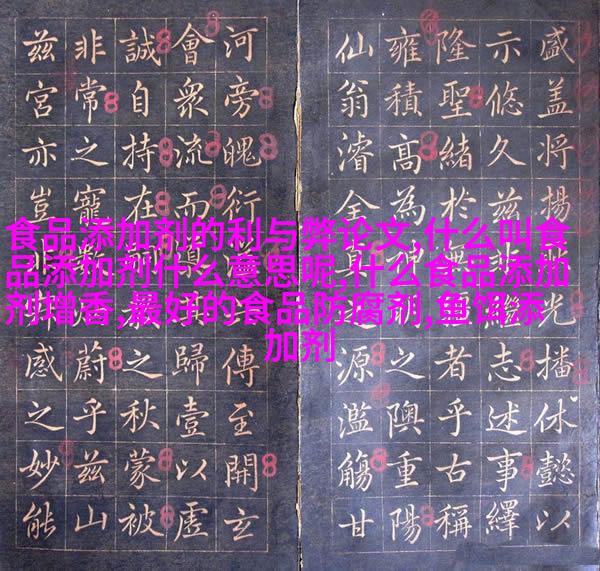 食品添加剂的利与弊论文,什么叫食
品添加剂什么意思呢,什么食品添加
剂增香,最好的食品防腐剂,鱼饵添
加剂
盛盖将揚光播休懿以
示悠久兹志述事繹
隆聖緒於者乎古稱
雍積高為之隩重陽
仙翁濬全真源濫觴甘
河旁魄衍傳至開玄
會衆流而歸壹以虛
誠自持在之秋蒙被
非常之寵蔚乎兹山
兹宮亦豈非感之妙能